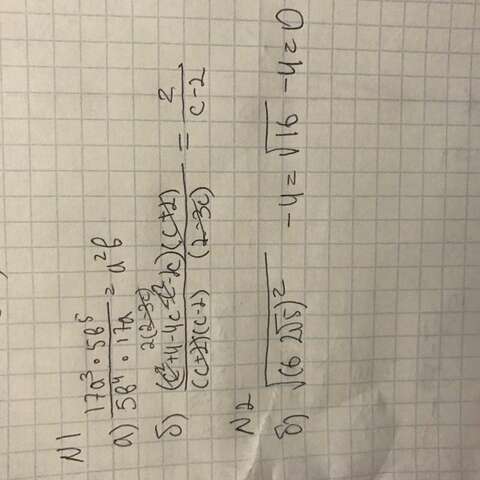 N1
а) 17a³ · 5b⁵ / 5b⁴ · 17a = a²b
2(2-3c)
б) (c²+4-4c-c²-2c)(c+2) / (c+2)(c-2) (2-3c) = 2 / c-2
N2
б) √(6 2√5)² -4 = √16 -4=0